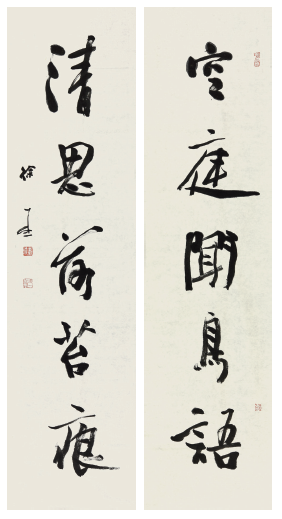 空庭聞鳥語
清思落苔痕
徐